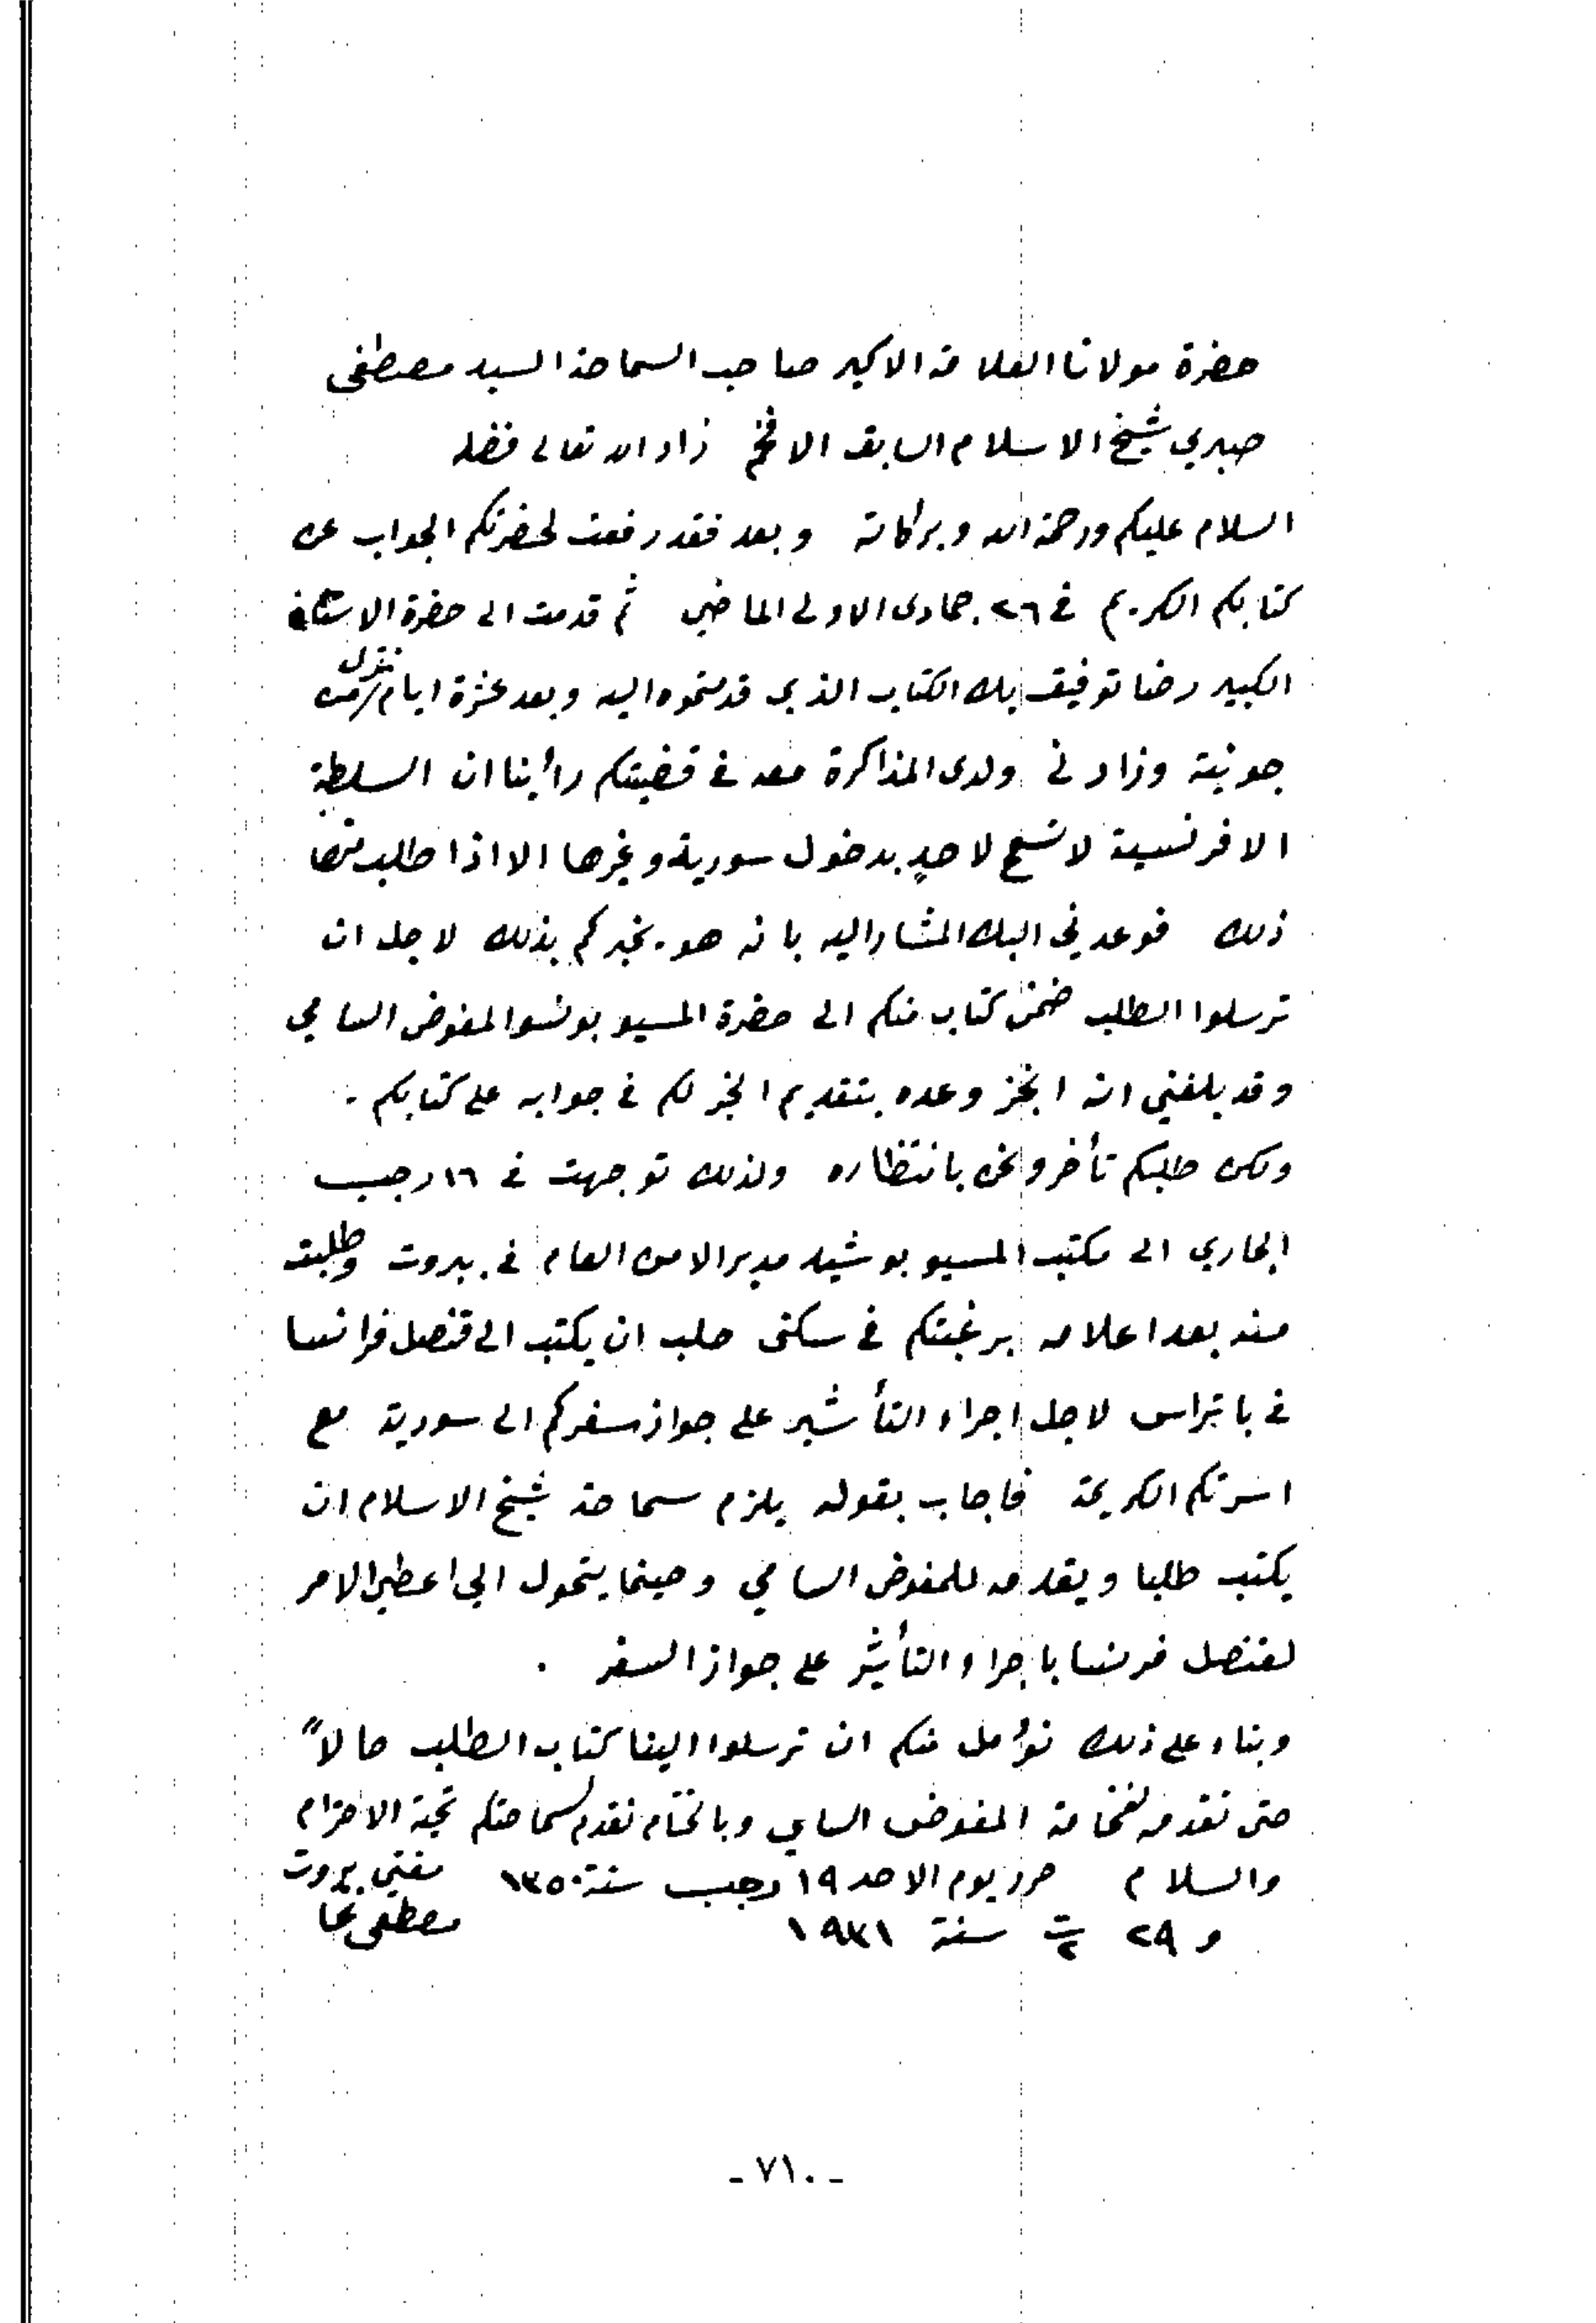 حضرة مولانا العلامة الاكبر صاحب السماحة السيد مصطفى
صبري شيخ الاسلام السابق الافخم زاد الله تعالى فضله
السلام عليكم ورحمة الله وبركاته وبعد فقد رفعت لحضرتكم الجواب عن
كتابكم الكريم في ٢٦ جمادى الاولى الماضي ثم قدمت الى حضرة الاستاذ
الكبير رضا توفيق بك الكتاب الذي قدمتموه اليه وبعد عشرة ايام نزل من
جونية وزارني ولدى المذاكرة معه في قضيتكم رأينا ان السلطة
الافرنسية لا تسمح لاحدٍ بدخول سورية وغيرها الا اذا طلب منها
ذلك فوعدني البك المشار اليه بانه هو يخبركم بذلك لاجل ان
ترسلوا الطلب ضمن كتاب منكم الى حضرة المسيو بونسو المفوض السامي
وقد بلغني انه انجز وعده بتقديم الخبر لكم في جوابه على كتابكم .
ولكن طلبكم تأخر ونحن بانتظاره ولذلك توجهت في ١٦ رجب
الجاري الى مكتب المسيو بوشيد مدير الامن العام في بيروت وطلبت
منه بعد اعلامه برغبتكم في سكنى حلب ان يكتب الى قنصل فرانسا
في باتراس لاجل اجراء التأشير على جواز سفركم الى سورية مع
اسرتكم الكريمة فاجاب بقوله يلزم سماحة شيخ الاسلام ان
يكتب طلبا ويقدمه للمفوض السامي وحينما يتحول الي اعطي الامر
لقنصل فرنسا باجراء التأشير على جواز السفر .
وبناء على ذلك نؤمل منكم ان ترسلوا الينا كتاب الطلب حالاً
حتى نقدمه لفخامة المفوض السامي وبالختام نقدم لسماحتكم تحية الاحترام
والسلام حرر يوم الاحد ١٩ رجب سنة ١٣٥٠ مفتي بيروت
و ٢٩ ت٢ سنة ١٩٣١ مصطفى نجا
- ٧١٠ -